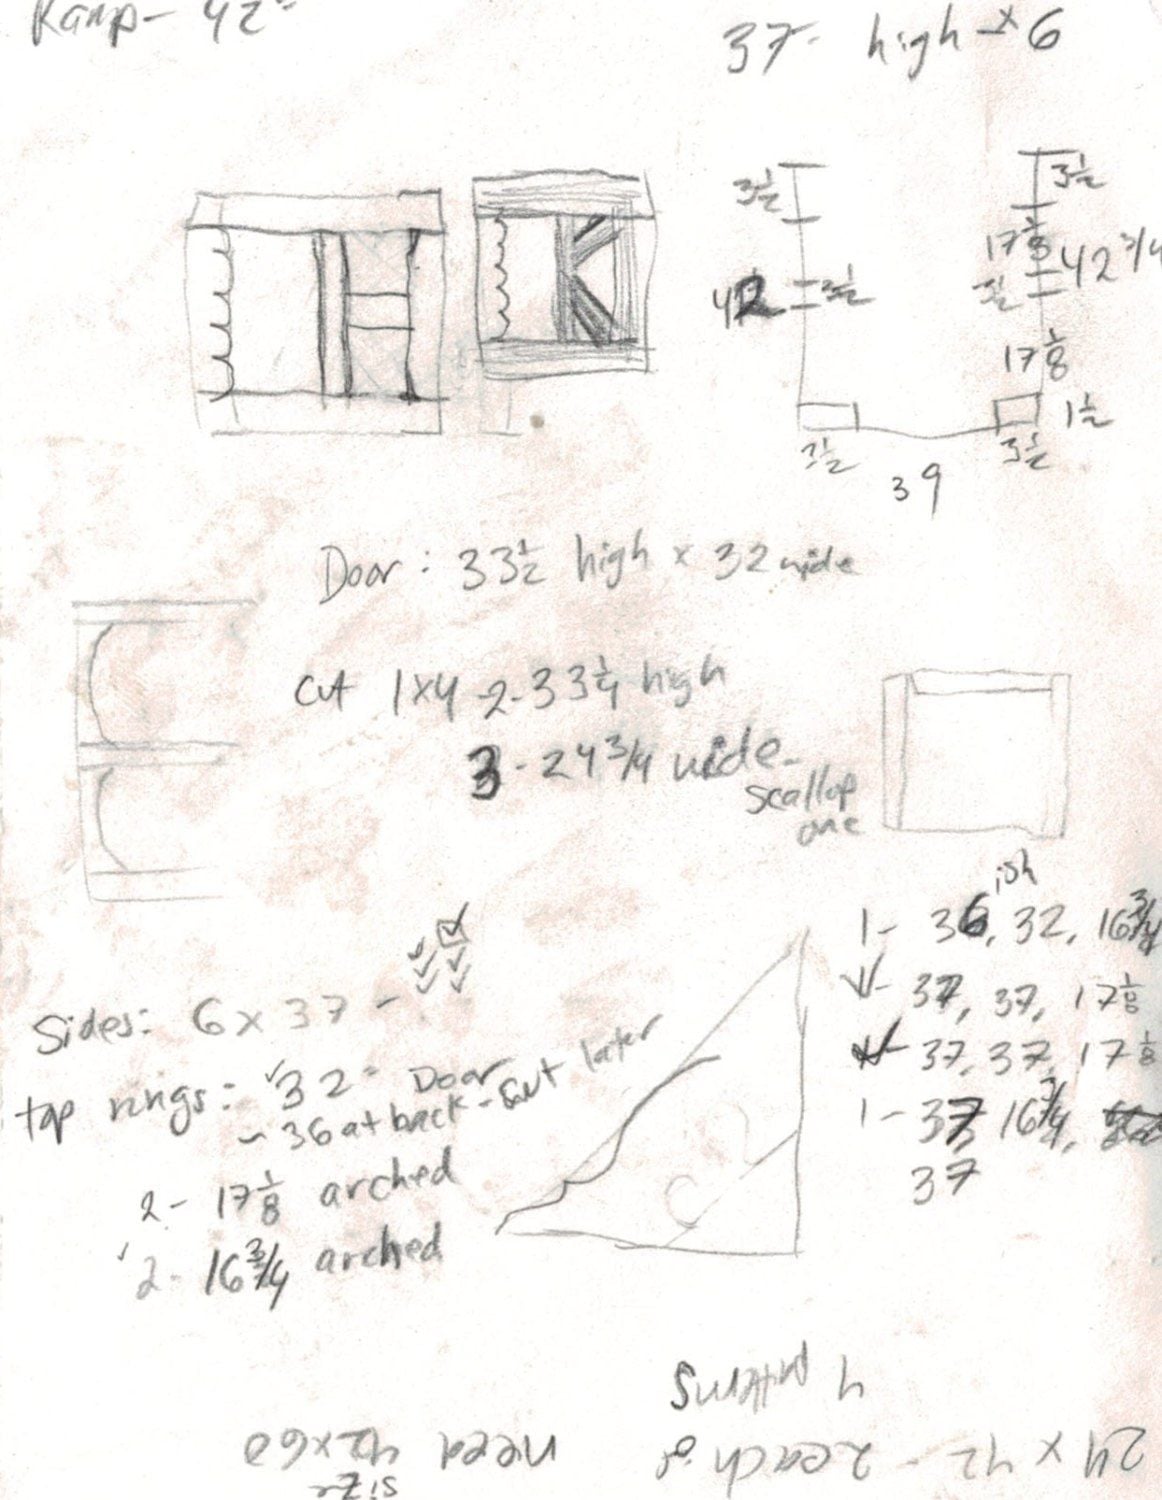 Ramp - 42"
37" high x 6
3½
3½
17⅛
42¾
42
3½
3½
17⅛
1½
3½
3½
39
Door: 33½ high x 32 wide
cut 1x4 2-33¼ high
3 - 24¾ wide -
scallop
one
ish
1 - 36, 32, 16¾
37, 37, 17⅛
37, 37, 17⅛
1 - 37, 16¾,
37
Sides: 6 x 37 -
top rings: 32" Door
- 36 at back - cut later
2 - 17⅛ arched
2 - 16¾ arched
24 x 42 - 2 each of
4 patterns
need 42x60
size